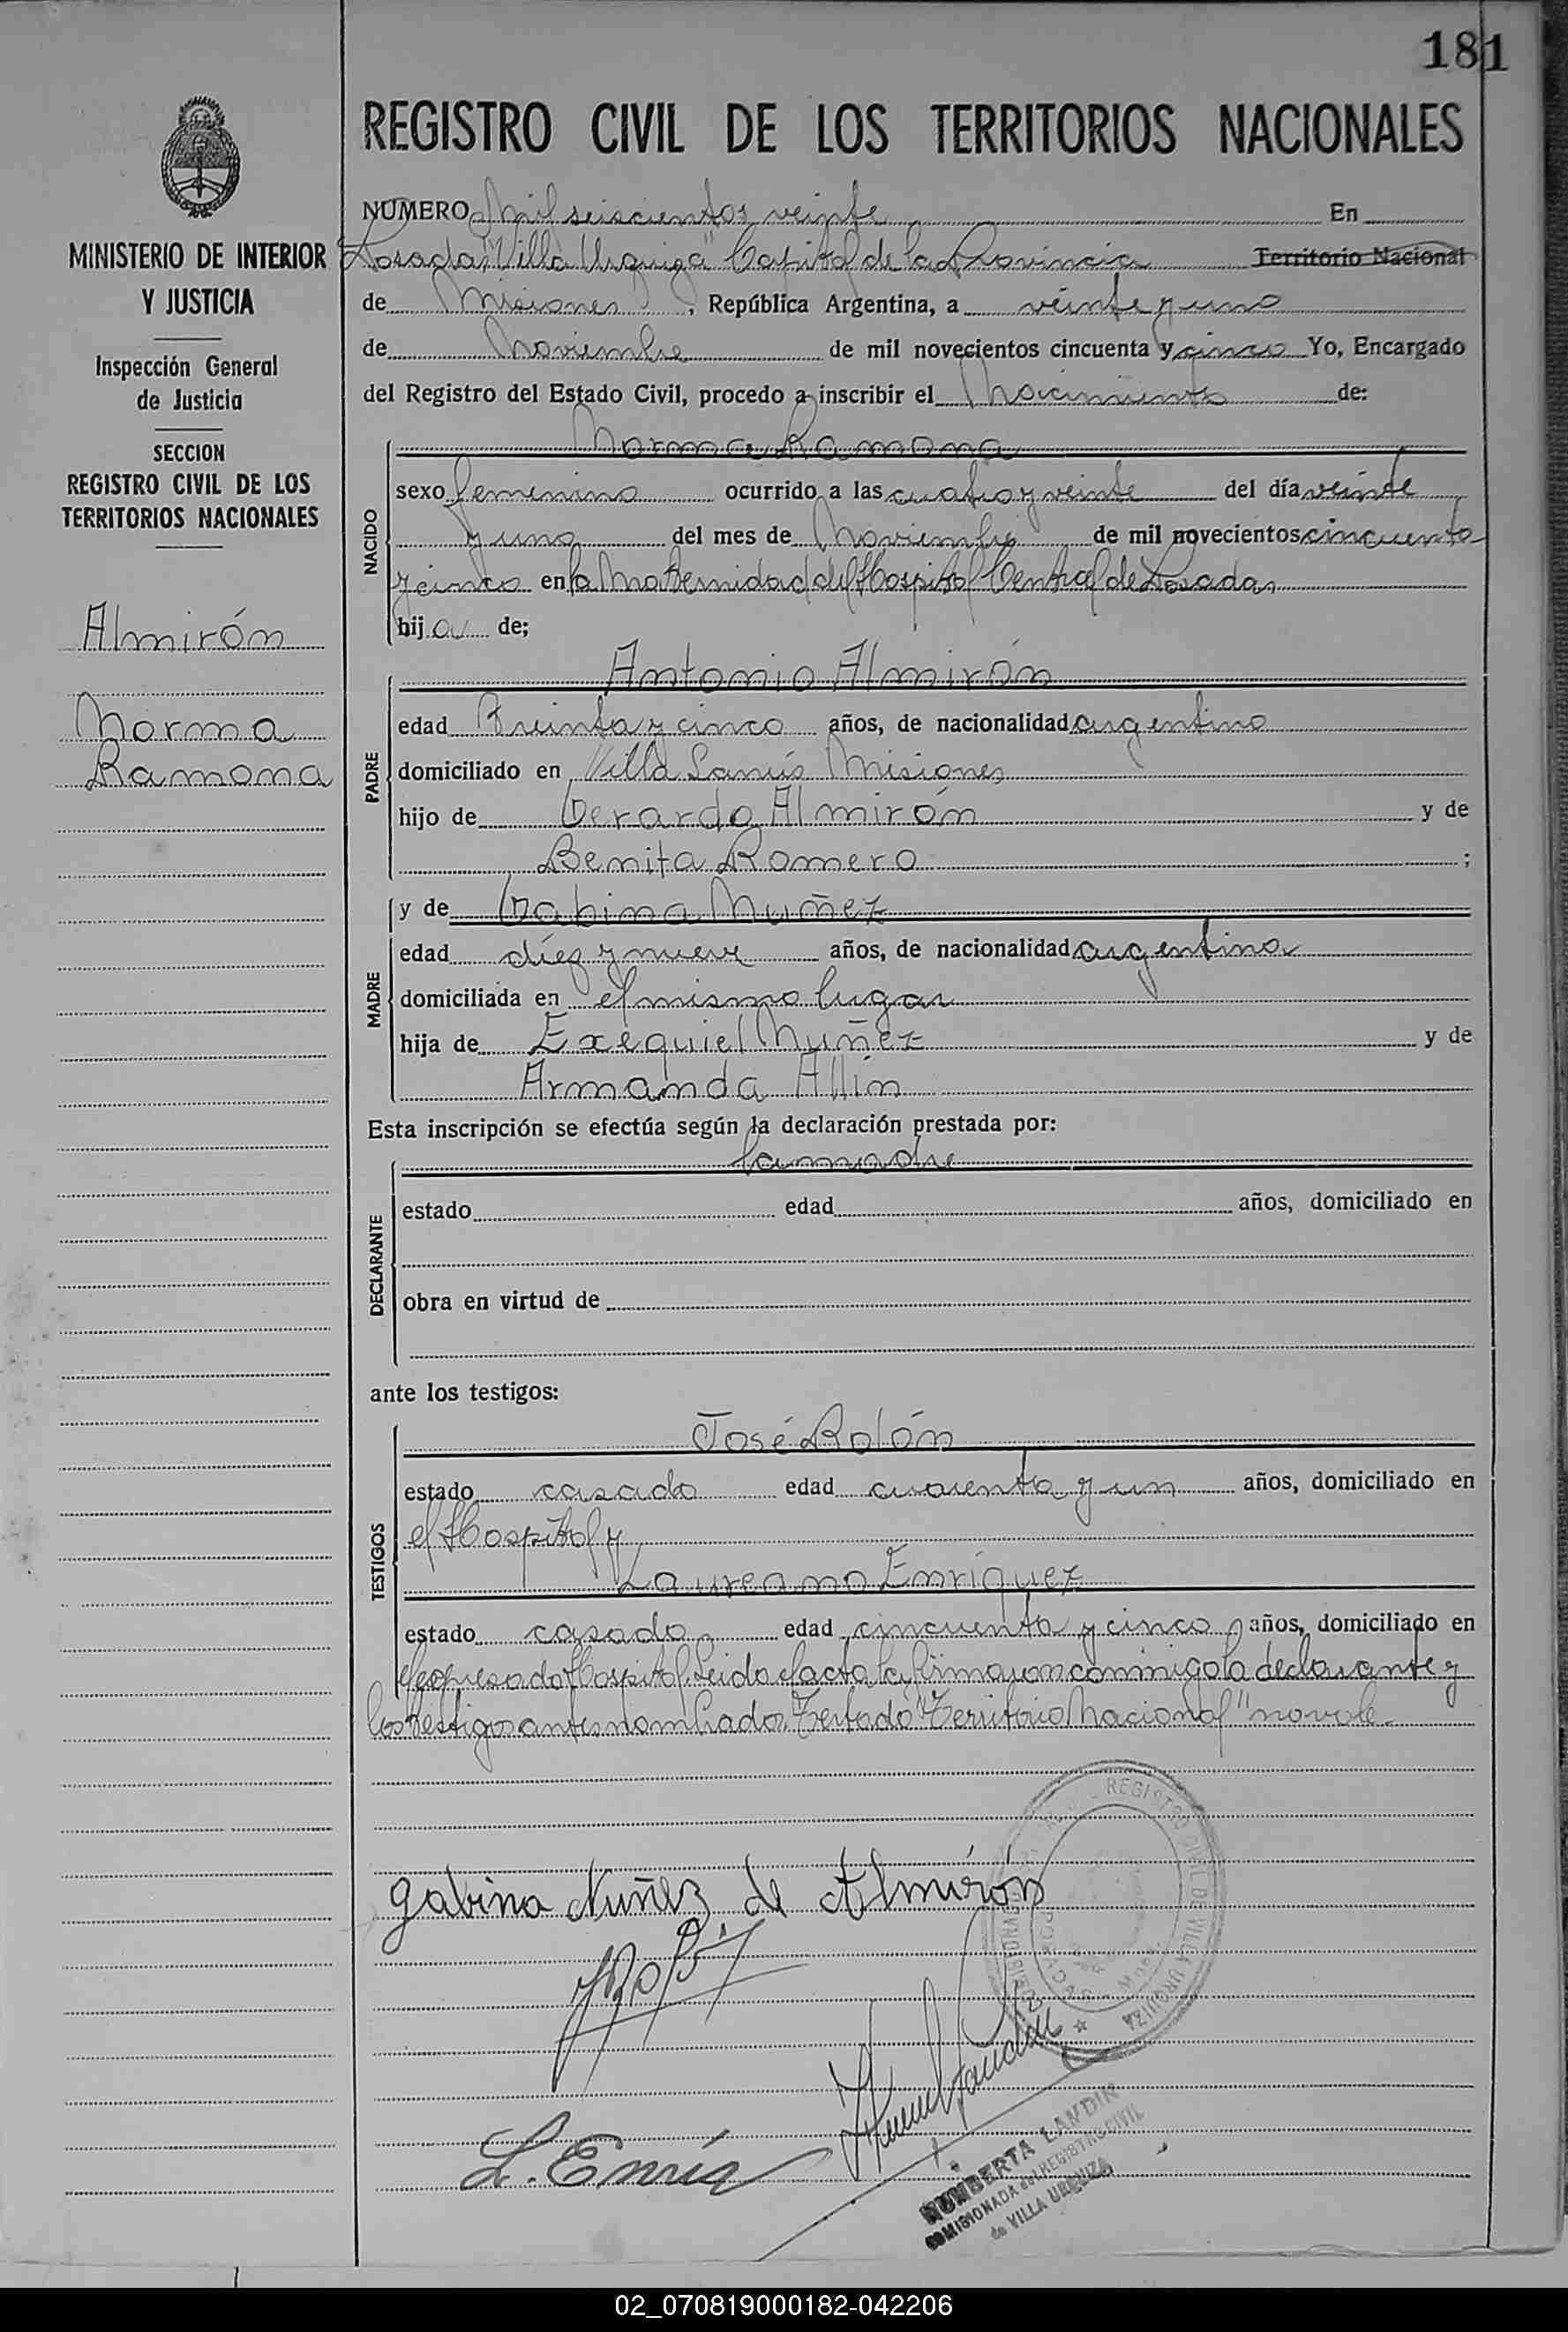 181
REGISTRO CIVIL DE LOS TERRITORIOS NACIONALES
MINISTERIO DE INTERIOR
Y JUSTICIA
Inspección General
de Justicia
SECCION
REGISTRO CIVIL DE LOS
TERRITORIOS NACIONALES
Almirón
Norma
Ramona
NUMERO Mil seiscientos veinte En
Posadas "Villa Urquiza" Capital de la Provincia Territorio Nacional
de Misiones, República Argentina, a veinte y uno
de Noviembre de mil novecientos cincuenta y cinco Yo, Encargado
del Registro del Estado Civil, procedo a inscribir el Nacimiento de:
Norma Ramona
NACIDO
sexo femenino ocurrido a las cuatro y veinte del día veinte
y uno del mes de Noviembre de mil novecientos cincuenta
y cinco en la Maternidad del Hospital Central de Posadas
hija de;
Antonio Almirón
PADRE
edad Treinta y cinco años, de nacionalidad argentino
domiciliado en Villa Lanús Misiones
hijo de Gerardo Almirón y de
Benita Romero ;
y de Gabina Nuñez
MADRE
edad diez y nueve años, de nacionalidad argentina
domiciliada en el mismo lugar
hija de Exequiel Nuñez y de
Armanda Allin
Esta inscripción se efectúa según la declaración prestada por:
la madre
DECLARANTE
estado edad años, domiciliado en
obra en virtud de
ante los testigos:
José Rolón
TESTIGOS
estado casado edad cuarenta y un años, domiciliado en
el Hospital y
Laureano Enriquez
estado casado, edad cincuenta y cinco años, domiciliado en
el expresado Hospital. Leida el acta la firmaron conmigo la declarante y
los testigos antes nombrados. Testado "Territorio Nacional" no vale.
REGISTRO CIVIL DE VILLA URQUIZA
Gabina Nuñez de Almirón
L. Enriq
HUMBERTA LANDIN
COMISIONADA del REGISTRO CIVIL
de VILLA URQUIZA
02_070819000182-042206